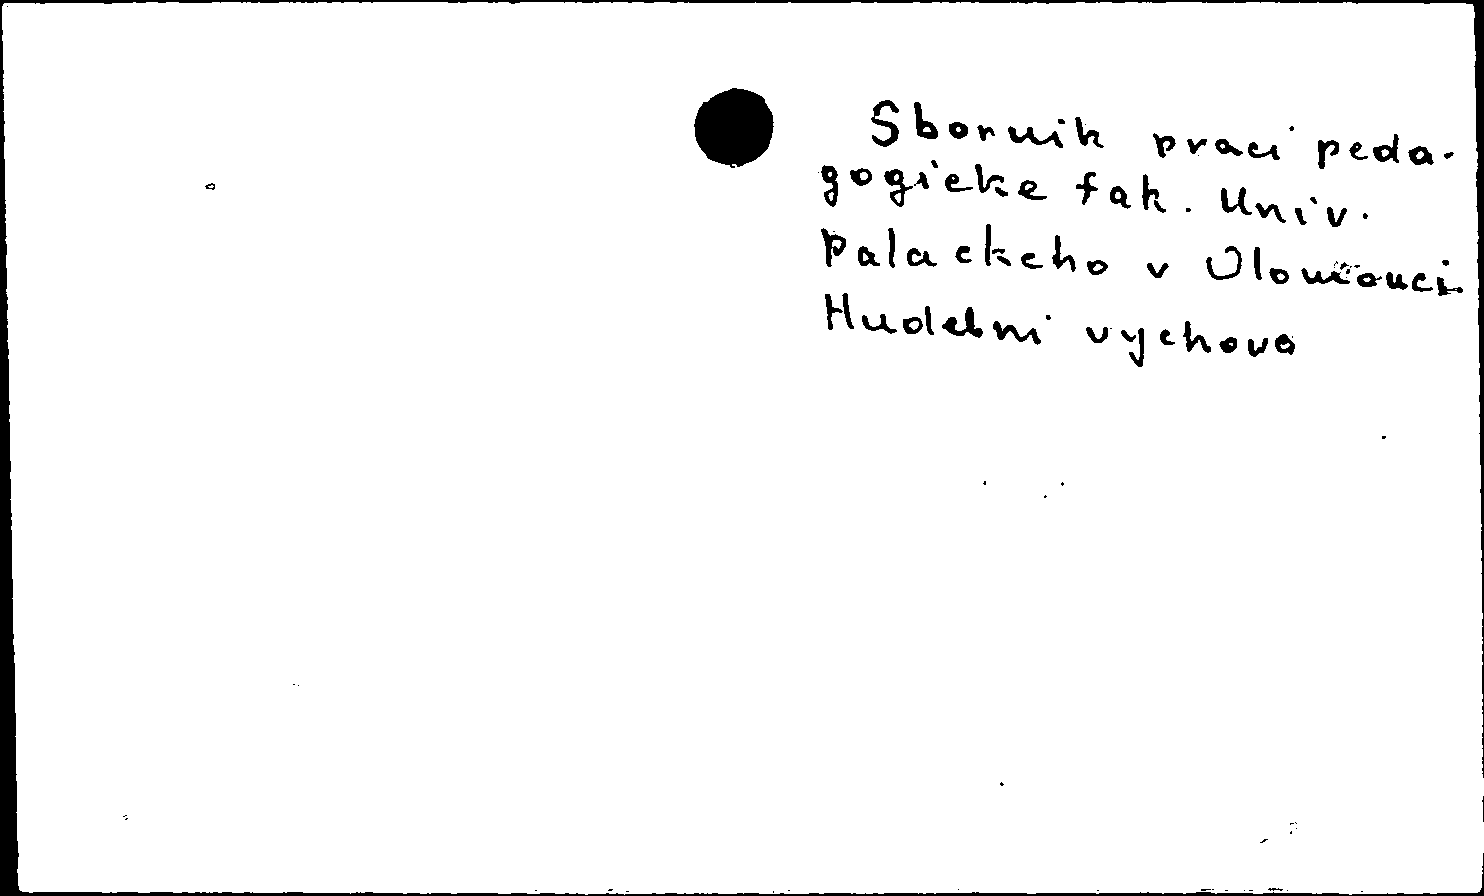 Sbornik praci peda-
gogicke fak. Univ.
Palackeho v Olomouci.
Hudebni vychova